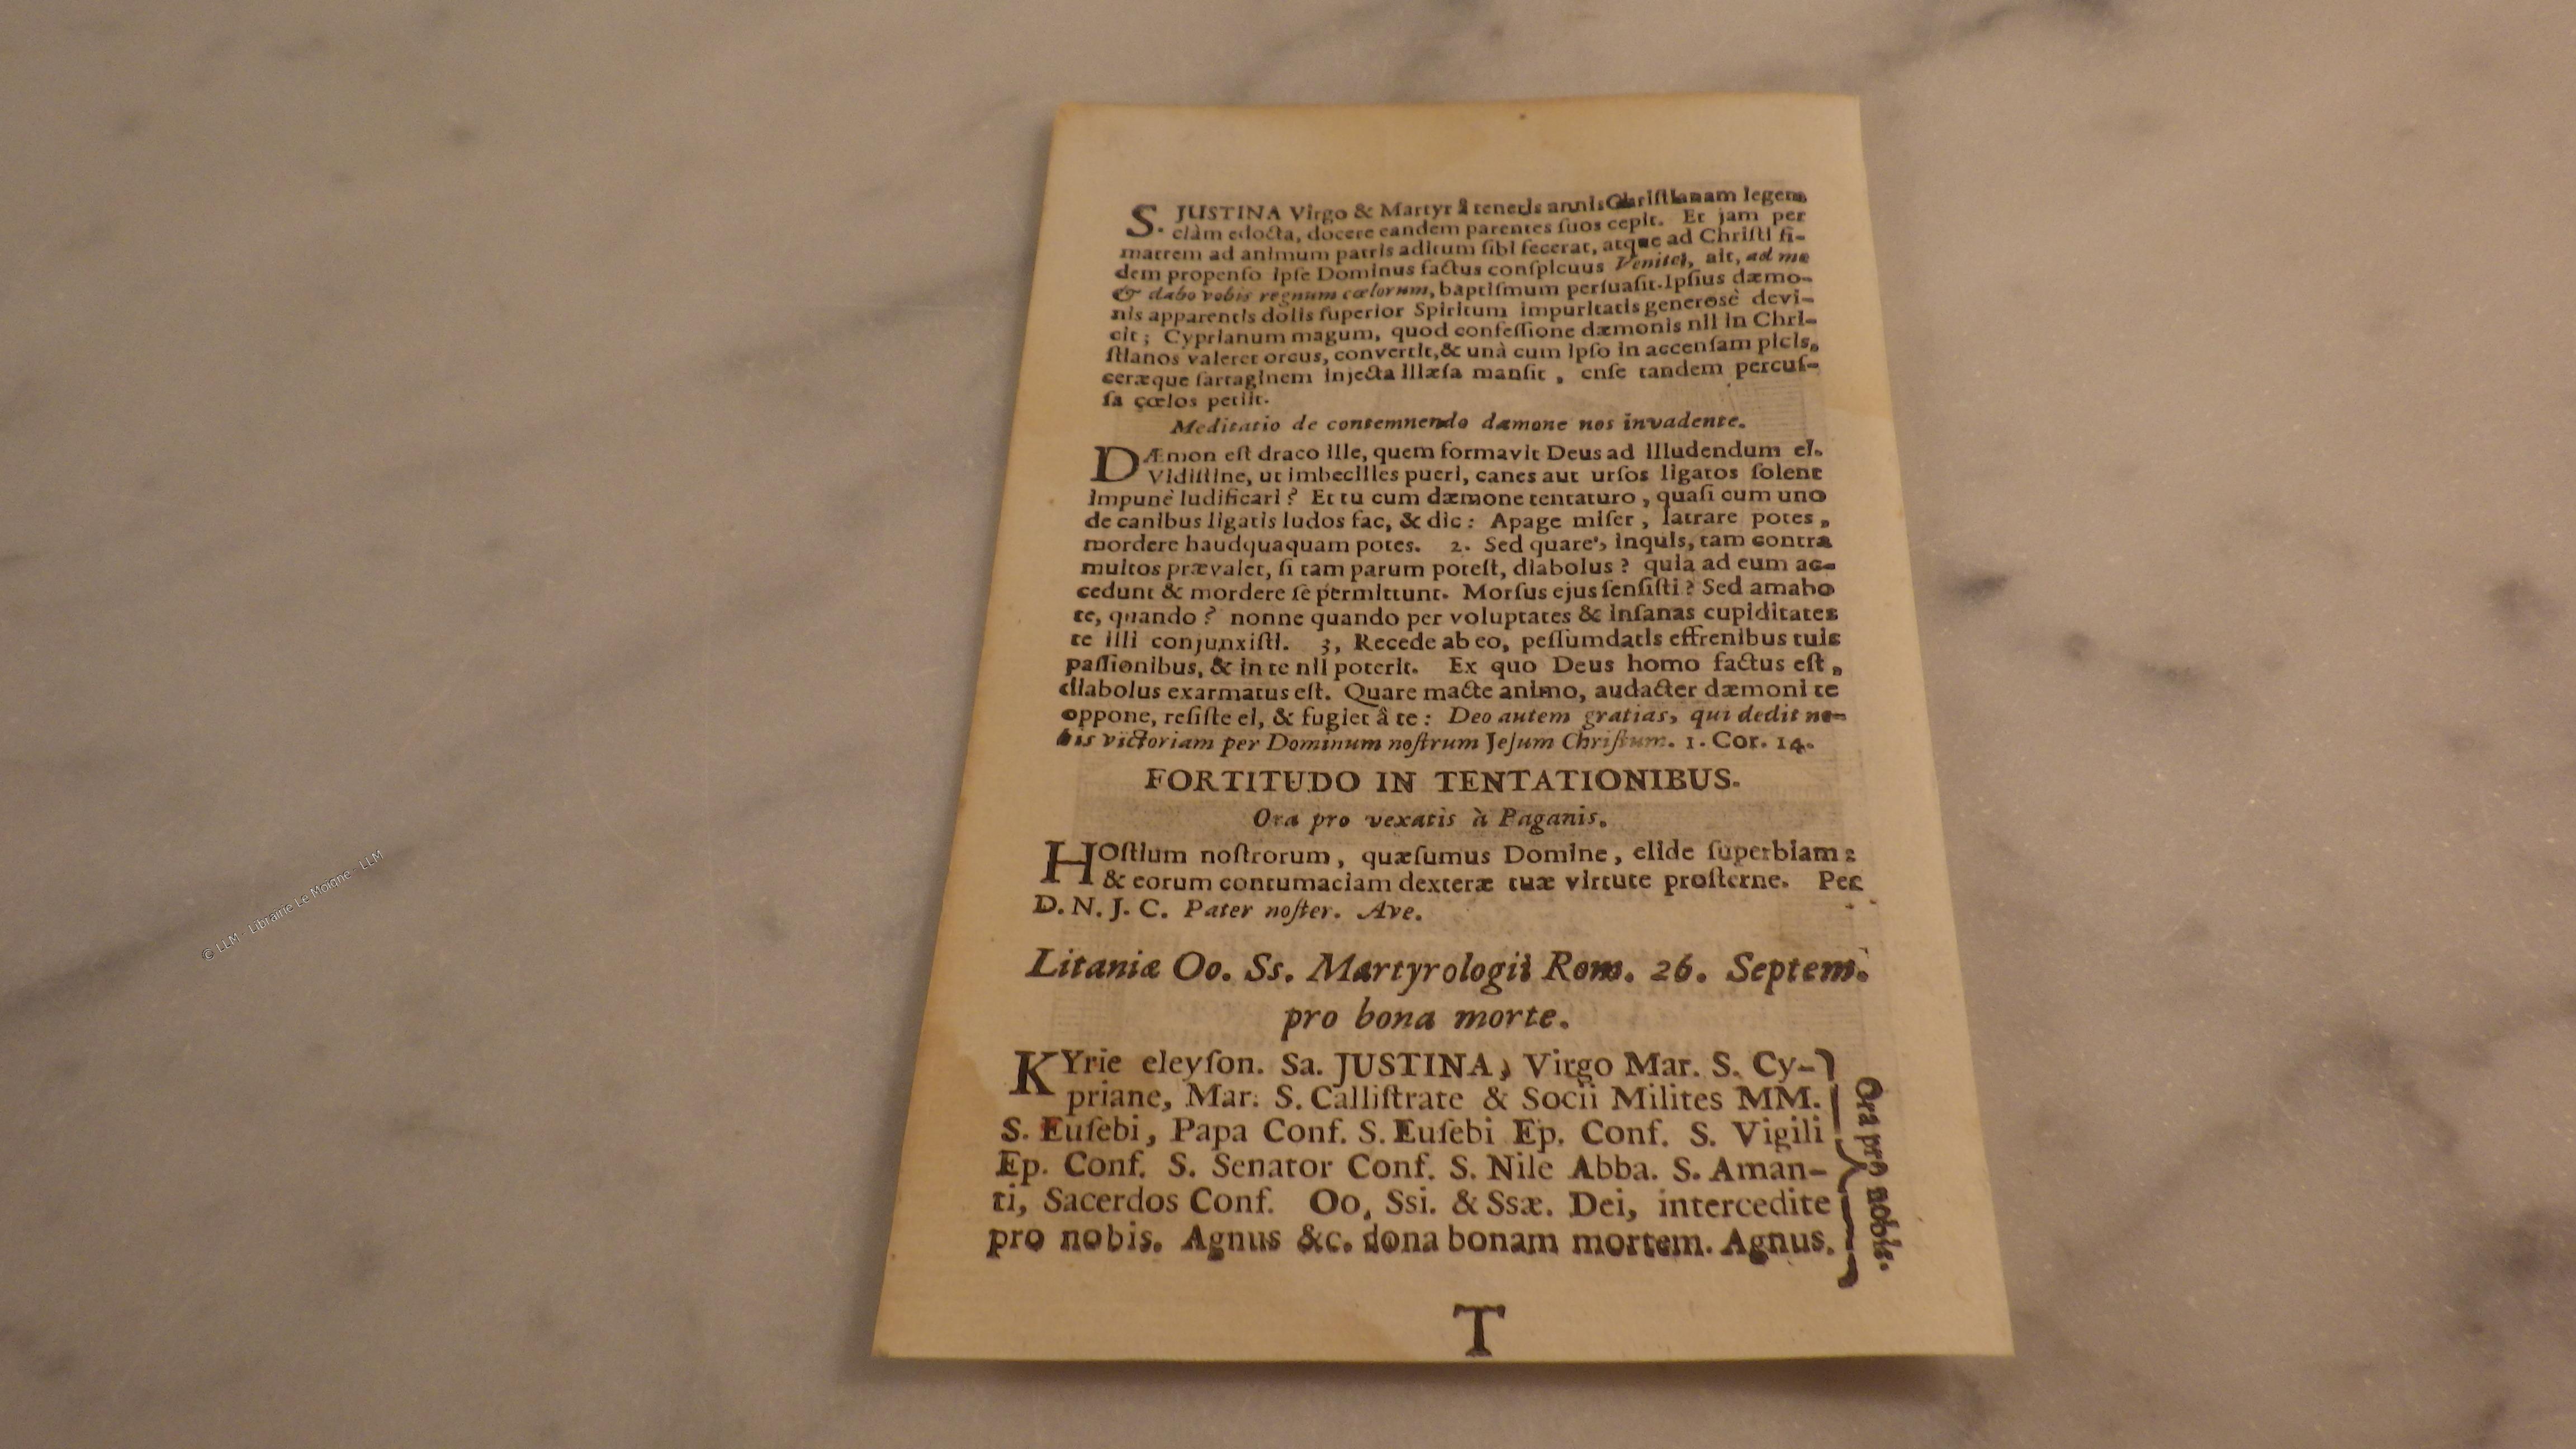 S. JUSTINA Virgo & Martyr â teneris annis Chriſtianam legem
clàm edocta, docere eandem parentes ſuos cepit. Et jam per
matrem ad animum patris aditum ſibi fecerat, atque ad Chriſti fi-
dem propenſo ipſe Dominus factus conſpicuus Venite, ait, ad me
& dabo vobis regnum cœlorum, baptiſmum perſuaſit. Ipſius dæmo-
nis apparentis dolis ſuperior Spiritum impuritatis generosè devi-
cit; Cyprianum magum, quod confeſſione dæmonis nil in Chri-
ſtianos valeret orcus, convertit, & unà cum ipſo in accenſam picis,
ceræque ſartaginem injecta illæſa manſit, enſe tandem percuſ-
ſa çœlos petiit.
Meditatio de contemnendo dæmone nos invadente.
DÆmon eſt draco ille, quem formavit Deus ad illudendum ei.
Vidiſtine, ut imbecilles pueri, canes aut urſos ligatos ſolent
impunè ludificari? Et tu cum dæmone tentaturo, quaſi cum uno
de canibus ligatis ludos fac, & dic: Apage miſer, latrare potes,
mordere haudquaquam potes. 2. Sed quare, inquis, tam contra
multos prævalet, ſi tam parum poteſt, diabolus? quia ad eum ac-
cedunt & mordere ſe permittunt. Morſus ejus ſenſiſti? Sed amabo
te, quando? nonne quando per voluptates & inſanas cupiditates
te illi conjunxiſti. 3, Recede ab eo, peſſumdatis effrenibus tuis
paſſionibus, & in te nil poterit. Ex quo Deus homo factus eſt,
diabolus exarmatus eſt. Quare macte animo, audacter dæmoni te
oppone, reſiſte ei, & fugiet â te: Deo autem gratias, qui dedit no-
bis victoriam per Dominum noſtrum Jeſum Chriſtum. 1. Cor. 14.
FORTITUDO IN TENTATIONIBUS.
Ora pro vexatis à Paganis.
HOſtium noſtrorum, quæſumus Domine, elide ſuperbiam:
& eorum contumaciam dexteræ tuæ virtute proſterne. Per
D. N. J. C. Pater noſter. Ave.
Litaniæ Oo. Ss. Martyrologii Rom. 26. Septem.
pro bona morte.
KYrie eleyſon. Sa. JUSTINA, Virgo Mar. S. Cy-
priane, Mar. S. Calliſtrate & Socii Milites MM.
S. Euſebi, Papa Conf. S. Euſebi Ep. Conf. S. Vigili
Ep. Conf. S. Senator Conf. S. Nile Abba. S. Aman-
ti, Sacerdos Conf. Oo. Ssi. & Ssæ. Dei, intercedite
pro nobis. Agnus &c. dona bonam mortem. Agnus.
Ora pro nobis.
T
© LLM - Librairie Le Moigne - LLM